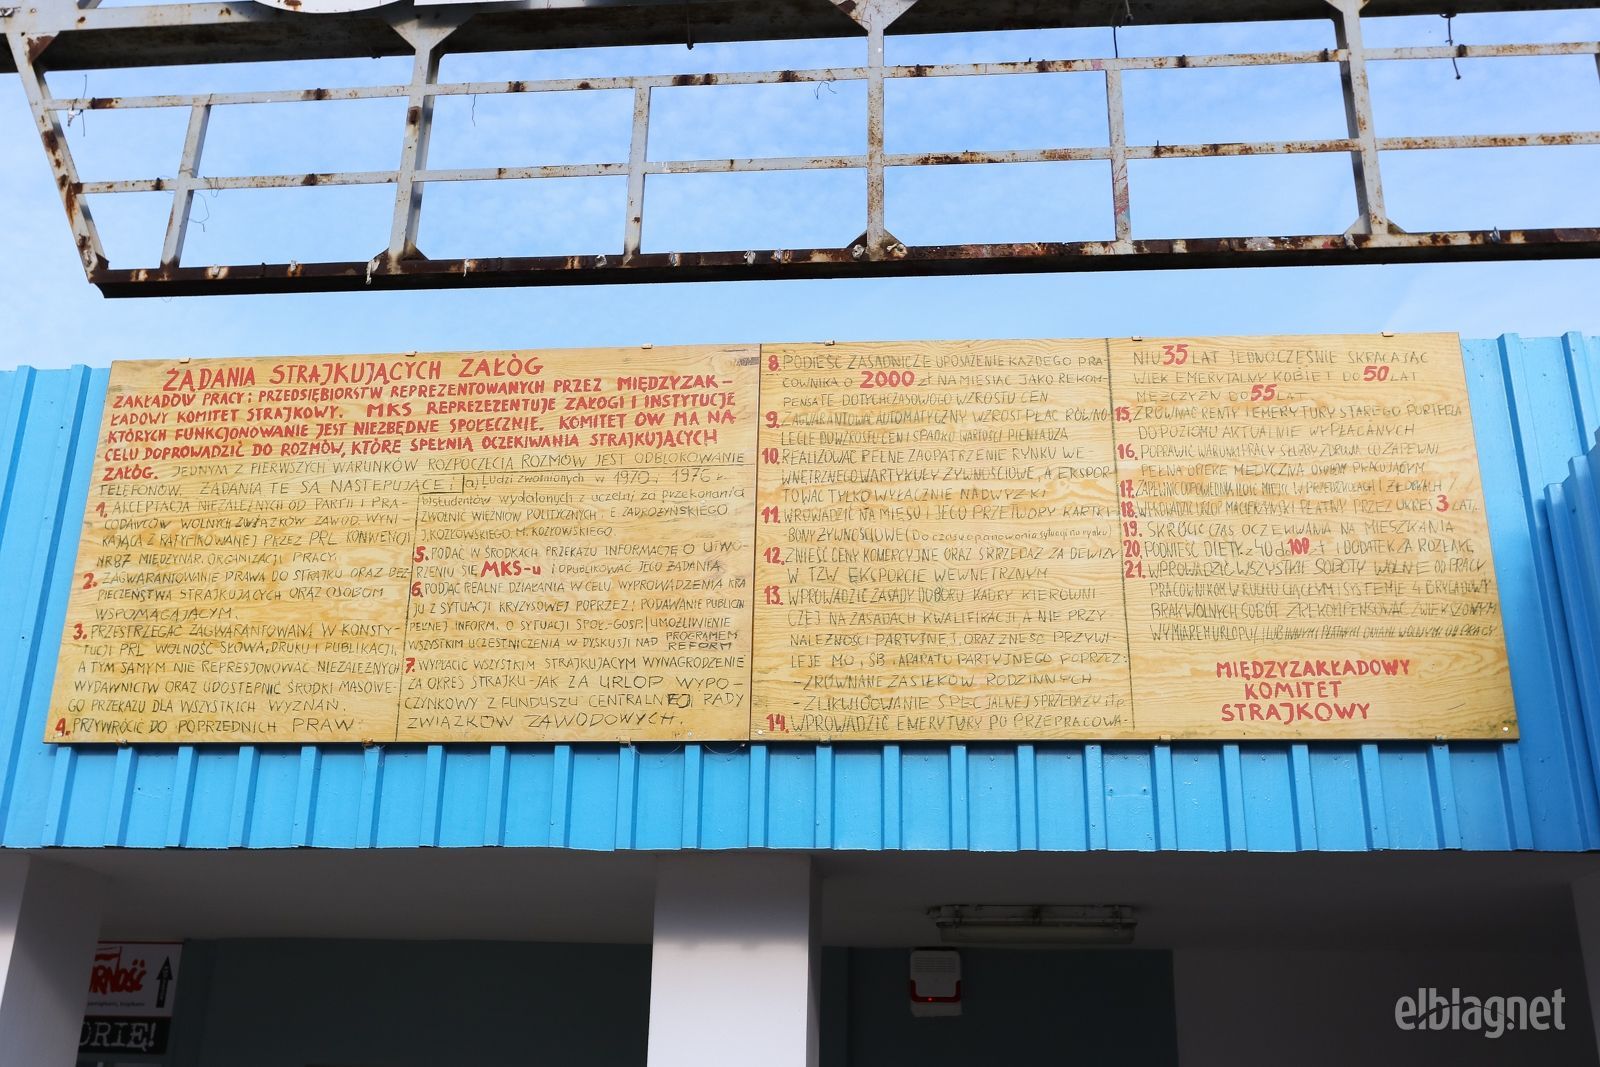 ŻĄDANIA STRAJKUJĄCYCH ZAŁÓG
ZAKŁADÓW PRACY i PRZEDSIĘBIORSTW REPREZENTOWANYCH PRZEZ MIĘDZYZAK-
ŁADOWY KOMITET STRAJKOWY. MKS REPREZEZENTUJE ZAŁOGI I INSTYTUCJE
KTÓRYCH FUNKCJONOWANIE JEST NIEZBĘDNE SPOŁECZNIE. KOMITET ÓW MA NA
CELU DOPROWADZIĆ DO ROZMÓW, KTÓRE SPEŁNIĄ OCZEKIWANIA STRAJKUJĄCYCH
ZAŁÓG. JEDNYM Z PIERWSZYCH WARUNKÓW ROZPOCZĘCIA ROZMÓW JEST ODBLOKOWANIE
TELEFONÓW. ŻĄDANIA TE SĄ NASTĘPUJĄCE:
1. AKCEPTACJA NIEZALEŻNYCH OD PARTII I PRA-
CODAWCÓW WOLNYCH ZWIĄZKÓW ZAWOD. WYNI-
KAJĄCA Z RATYFIKOWANEJ PRZEZ PRL KONWENCJI
NR 87 MIĘDZYNAR. ORGANIZACJI PRACY.
2. ZAGWARANTOWANIE PRAWA DO STRAJKU ORAZ BEZ-
PIECZEŃSTWA STRAJKUJĄCYCH ORAZ OSOBOM
WSPOMAGAJĄCYM.
3. PRZESTRZEGAĆ ZAGWARANTOWANĄ W KONSTY-
TUCJI PRL WOLNOŚĆ SŁOWA, DRUKU I PUBLIKACJI,
A TYM SAMYM NIE REPRESJONOWAĆ NIEZALEŻNYCH
WYDAWNICTW ORAZ UDOSTĘPNIĆ ŚRODKI MASOWE-
GO PRZEKAZU DLA WSZYSTKICH WYZNAŃ.
4. PRZYWRÓCIĆ DO POPRZEDNICH PRAW:
a) Ludzi zwolnionych w 1970, i 1976 r.
b) studentów wydalonych z uczelni za przekonania
ZWOLNIĆ WIĘŹNIÓW POLITYCZNYCH: E. ZADROŻYŃSKIEGO
J. KOZŁOWSKIEGO. M. KOZŁOWSKIEGO.
5. PODAĆ W ŚRODKACH PRZEKAZU INFORMACJĘ O UTWO-
RZENIU SIĘ MKS-u i OPUBLIKOWAĆ JEGO ŻĄDANIA
6. PODJĄĆ REALNE DZIAŁANIA W CELU WYPROWADZENIA KRA
JU Z SYTUACJI KRYZYSOWEJ POPRZEZ: PODAWANIE PUBLICZN
PEŁNEJ INFORM. O SYTUACJI SPOŁ-GOSP. UMOŻLIWIENIE
WSZYSTKIM UCZESTNICZENIA W DYSKUSJI NAD PROGRAMEM
REFORM
7. WYPŁACIĆ WSZYSTKIM STRAJKUJĄCYM WYNAGRODZENIE
ZA OKRES STRAJKU-JAK ZA URLOP WYPO-
CZYNKOWY Z FUNDUSZU CENTRALNEJ RADY
ZWIĄZKÓW ZAWODOWYCH.
8. PODIEŚĆ ZASADNICZE UPOSAŻENIE KAŻDEGO PRA
COWNIKA O 2000 zł NA MIESIĄC JAKO REKOM-
PENSATĘ DOTYCHCZASOWEGO WZROSTU CEN
9. ZAGWARANTOWAĆ AUTOMATYCZNY WZROST PŁAC RÓWNO-
LEGLE DO WZROSTU CEN I SPADKU WARTOŚCI PIENIĄDZA
10. REALIZOWAĆ PEŁNE ZAOPATRZENIE RYNKU WE-
WNĘTRZNEGO W ARTYKUŁY ŻYWNOŚCIOWE, A EKSPOR-
TOWAĆ TYLKO WYŁĄCZNIE NADWYŻKI
11. WROWADZIĆ NA MIĘSO I JEGO PRZETWORY KARTKI
-BONY ŻYWNOŚCIOWE (Do czasu opanowania sytuacji na rynku)
12. ZNIEŚĆ CENY KOMERCYJNE ORAZ SRZEDAŻ ZA DEWIZY
W TZW EKSPORCIE WEWNĘTRZNYM
13. WPROWADZIĆ ZASADY DOBORU KADRY KIEROWNI
CZEJ NA ZASADACH KWALIFIKACJI, A NIE PRZY
NALEŻNOŚCI PARTYJNEJ, ORAZ ZNEŚĆ PRZYWI-
LEJE MO, SB i APARATU PARTYJNEGO POPRZEZ:
-ZRÓWNANE ZASIŁKÓW RODZINNYCH
-ZLIKWIDOWANIE SPECJALNEJ SPRZEDAŻY itp.
14. WPROWADZIĆ EMERYTURY PO PRZEPRACOWA-
NIU 35 LAT JEDNOCZEŚNIE SKRACAJĄC
WIEK EMERYTALNY KOBIET DO 50 LAT
MĘŻCZYZN DO 55 LAT
15. ZRÓWNAĆ RENTY I EMERYTURY STAREGO PORTFELA
DO POZIOMU AKTUALNIE WYPŁACANYCH
16. POPRAWIĆ WARUNKI PRACY SŁUŻBY ZDROWIA CO ZAPEWNI
PEŁNĄ OPIEKĘ MEDYCZNĄ OSOBOM PRACUJĄCYM
17. ZAPEWNIĆ ODPOWIEDNIĄ ILOŚĆ MIEJSC W PRZEDSZKOLACH I ŻŁOBKACH
18. WPROWADZIĆ URLOP MACIERZYŃSKI PŁATNY PRZEZ OKRES 3 LAT.
19. SKRÓCIĆ CZAS OCZEKIWANIA NA MIESZKANIA
20. PODNIEŚĆ DIETY z 40 do 100 zł I DODATEK ZA ROZŁĄKĘ
21. WPROWADZIĆ WSZYSTKIE SOBOTY WOLNE OD PRACY
PRACOWNIKOM W RUCHU CIĄGŁYM I SYSTEMIE 4 BRYGADOWYM
BRAK WOLNYCH SOBÓT ZREKOMPENSOWAĆ ZWIĘKSZONYM
WYMIAREM URLOPU LUB INNYMI PŁATNYMI DNIAMI WOLNYMI OD PRACY
MIĘDZYZAKŁADOWY
KOMITET
STRAJKOWY
elblagnet